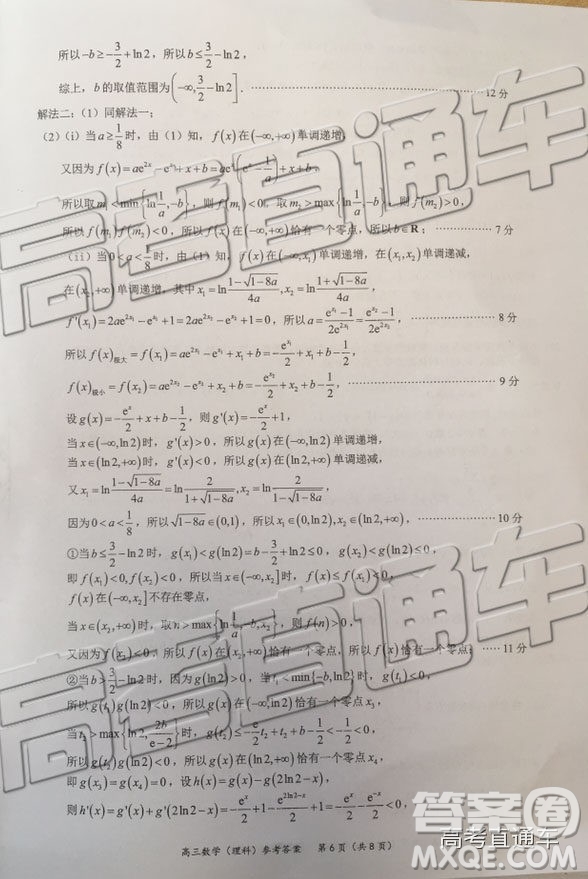 所以-b≥-3/2+ln2,所以b≤3/2-ln2,
综上,b的取值范围为(-∞,3/2-ln2]. ……………… 12分
解法二:(1)同解法一;
(2)(i)当a≥1/8时,由(1)知,f(x)在(-∞,+∞)单调递增,
又因为f(x)=ae^{2x}-e^x+x+b=ae^x(e^x-1/a)+x+b,
所以取m₁<min{ln1/a,-b},则f(m₁)<0,取m₂>max{ln1/a,-b},则f(m₂)>0,
所以f(m₁)f(m₂)<0,所以f(x)在(-∞,+∞)恰有一个零点,所以b∈R; ……………… 7分
(ii)当0<a<1/8时,由(1)知,f(x)在(-∞,x₁)单调递增,在(x₁,x₂)单调递减,
在(x₂,+∞)单调递增,其中x₁=ln(1-√(1-8a))/(4a),x₂=ln(1+√(1-8a))/(4a),
f'(x₁)=2ae^{2x₁}-e^{x₁}+1=2ae^{2x₂}-e^{x₂}+1=0,所以a=(e^{x₁}-1)/(2e^{2x₁})=(e^{x₂}-1)/(2e^{2x₂}) ……………… 8分
所以f(x)极大=f(x₁)=ae^{2x₁}-e^{x₁}+x₁+b=-e^{x₁}/2+x₁+b-1/2,
f(x)极小=f(x₂)=ae^{2x₂}-e^{x₂}+x₂+b=-e^{x₂}/2+x₂+b-1/2, ……………… 9分
设g(x)=-e^x/2+x+b-1/2,则g'(x)=-e^x/2+1,
当x∈(-∞,ln2)时,g'(x)>0,所以g(x)在(-∞,ln2)单调递增,
当x∈(ln2,+∞)时,g'(x)<0,所以g(x)在(ln2,+∞)单调递减,
又x₁=ln(1-√(1-8a))/(4a)=ln2/(1+√(1-8a)),x₂=ln2/(1-√(1-8a)),
因为0<a<1/8,所以√(1-8a)∈(0,1),所以x₁∈(0,ln2),x₂∈(ln2,+∞), ……………… 10分
①当b≤3/2-ln2时,g(x₁)<g(ln2)=b-3/2+ln2≤0,g(x₂)<g(ln2)≤0,
即f(x₁)<0,f(x₂)<0,所以当x∈(-∞,x₂]时,f(x)≤f(x₁)<0,
f(x)在(-∞,x₂]不存在零点,
当x∈(x₂,+∞)时,取n>max{ln1/a,-b,x₂},则f(n)>0,
又因为f(x₂)<0,所以f(x)在(x₂,+∞)恰有一个零点,所以f(x)在(-∞,+∞)恰有一个零点; …… 11分
②当b>3/2-ln2时,因为g(ln2)>0,当t₁<min{-b,ln2}时,g(t₁)<0,
所以g(t₁)g(ln2)<0,所以g(x)在(-∞,ln2)恰有一个零点x₃,
当t₂>max{ln2,2b/(e-2)}时,g(t₂)≤-e/2t₂+t₂+b-1/2<-1/2<0,
所以g(t₂)g(ln2)<0,所以g(x)在(ln2,+∞)恰有一个零点x₄,
即g(x₃)=g(x₄)=0,设h(x)=g(x)-g(2ln2-x),
则h'(x)=g'(x)+g'(2ln2-x)=-e^x/2+1-e^{2ln2-x}/2+1=-e^x/2-e^{-x}/2<0,
高三数学(理科)参考答案 第6页(共8页)
高考直通车
高考直通车
答案圈
高考直通车